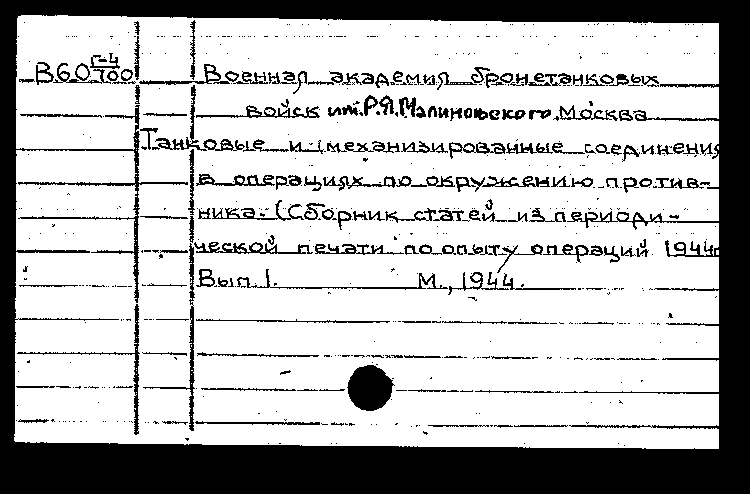 В60 Г-4/700 Военная академия бронетанковых
войск им.Р.Я.Малиновского.Москва
Танковые и механизированные соединения
в операциях по окружению против-
ника. (Сборник статей из периоди-
ческой печати по опыту операций 1944г
Вып.1. М., 1944.